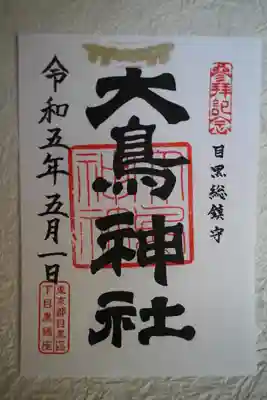 參拜記念
目黒総鎮守
大鳥神社
令和五年五月一日
東京都目黒區
下目黒鎮座